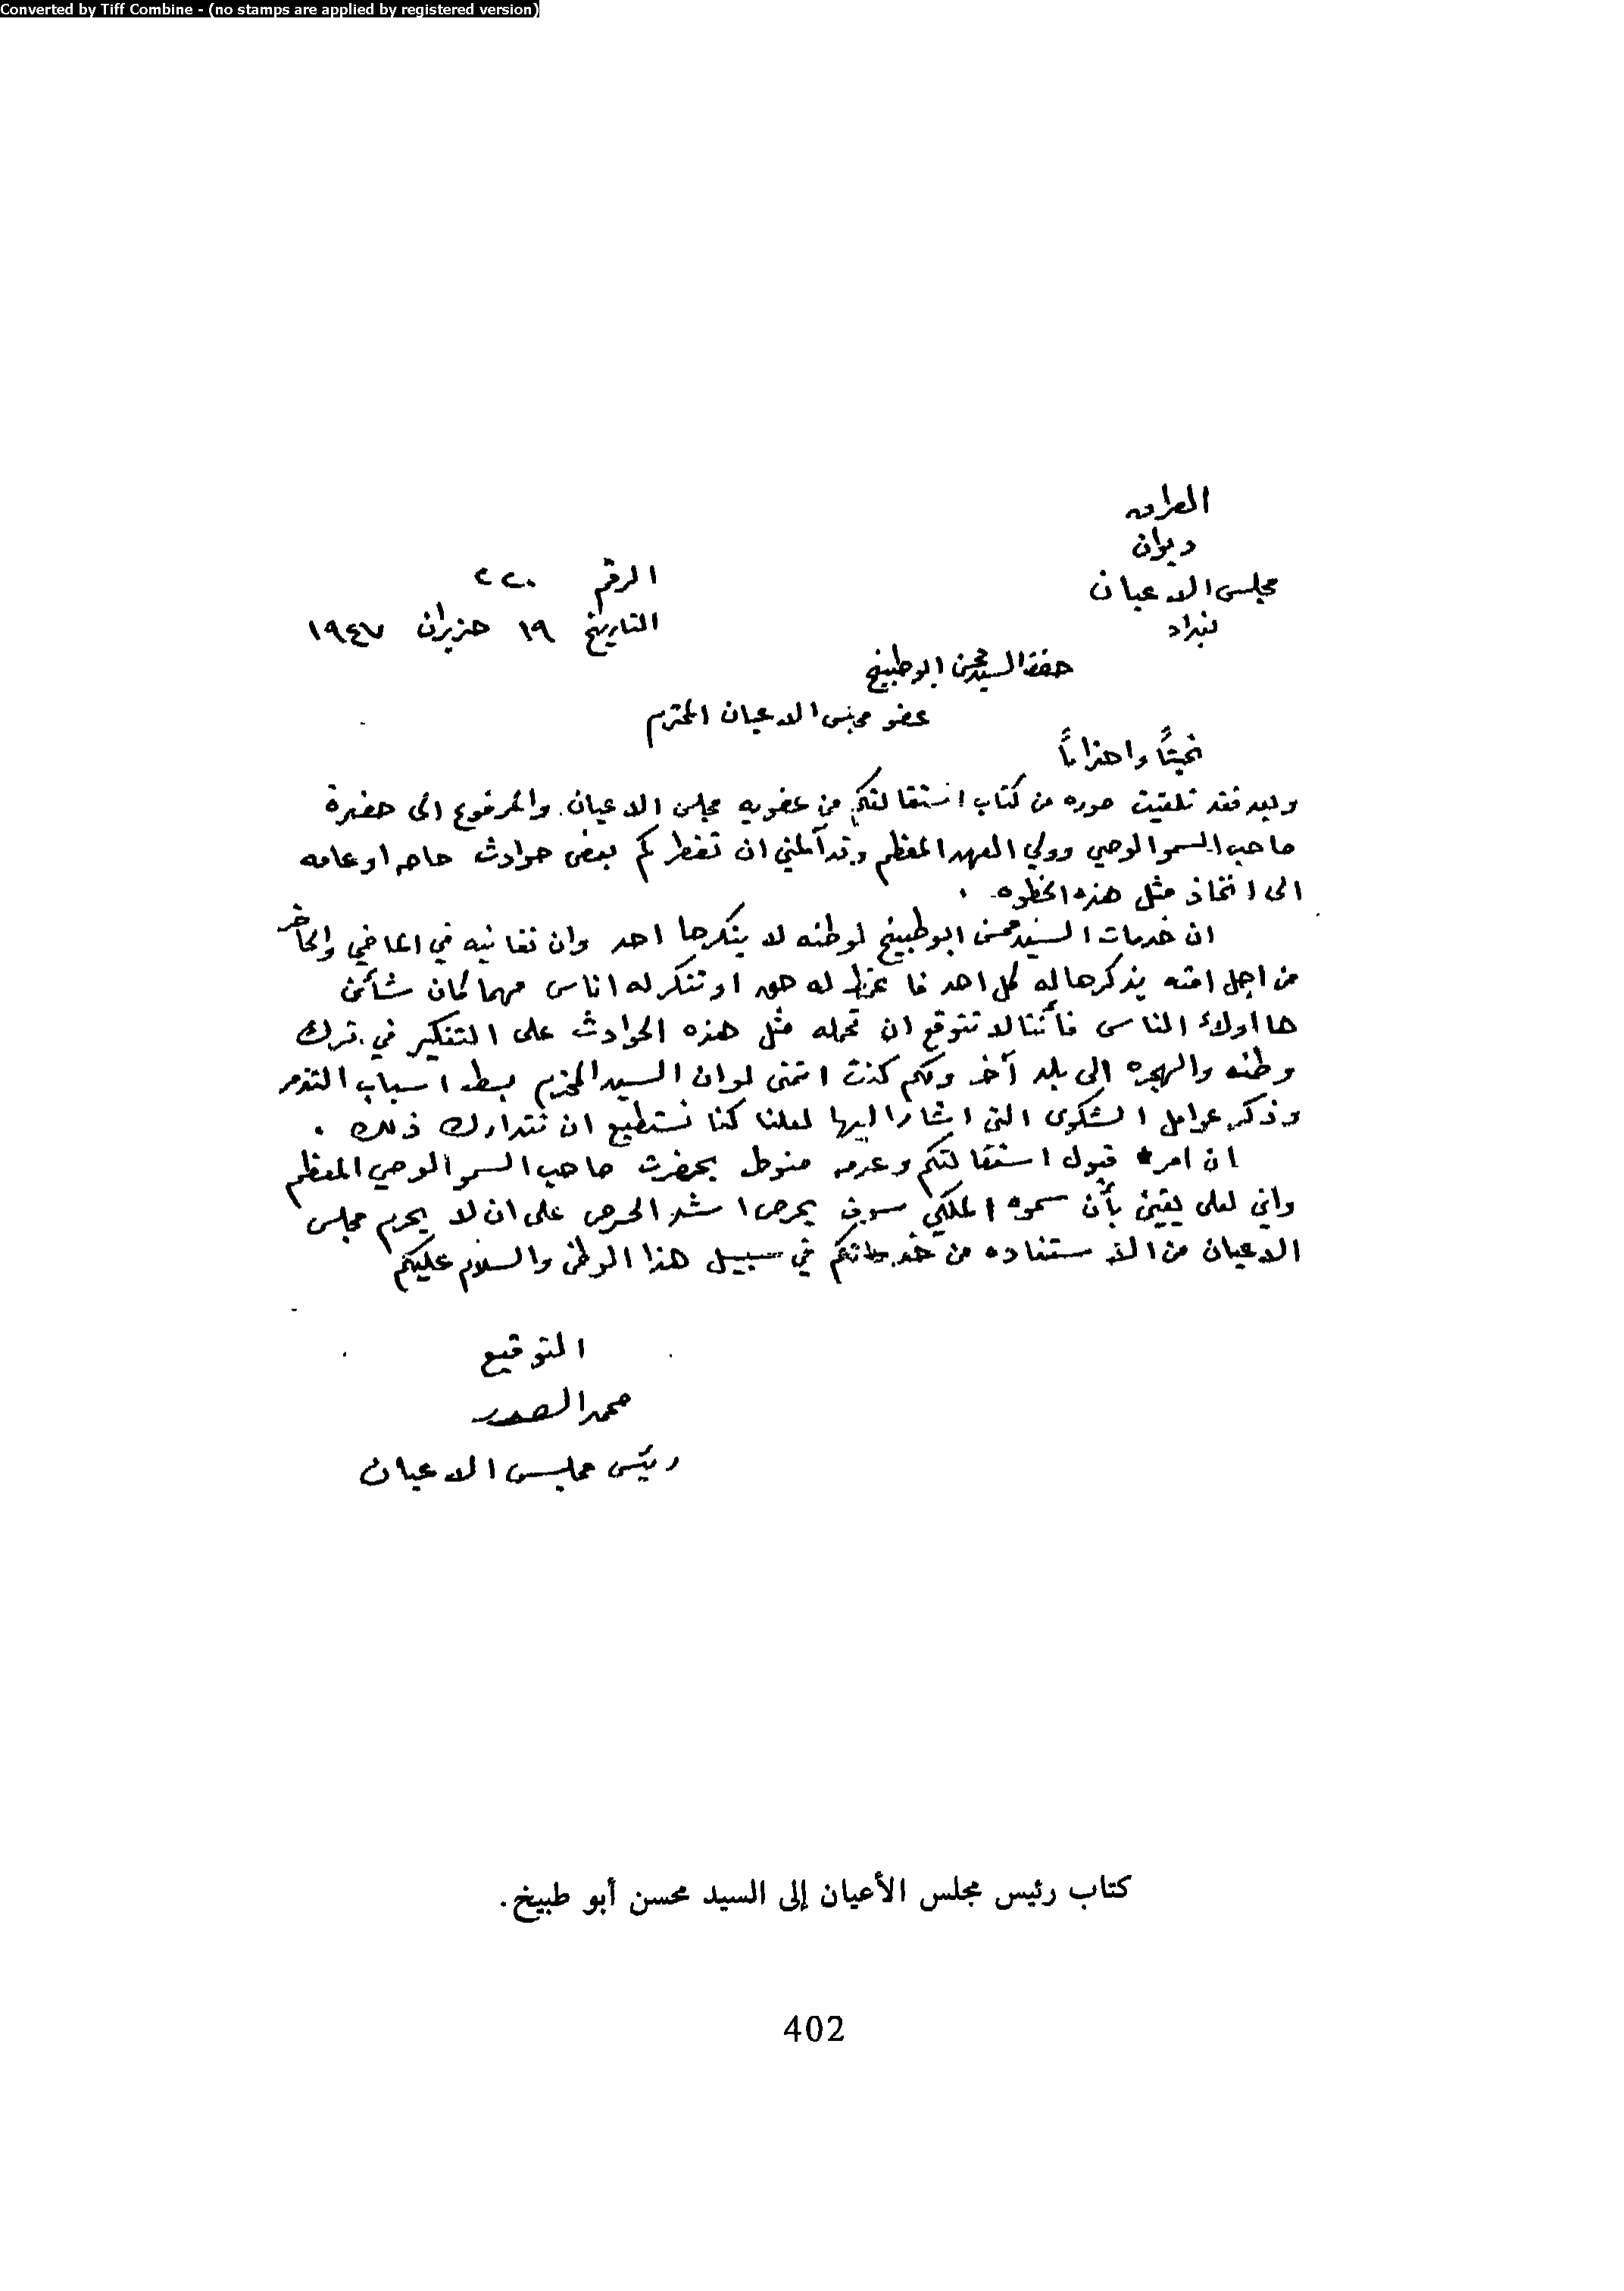 Converted by Tiff Combine - (no stamps are applied by registered version)
العراق
ديوان
مجلس الاعيان
بغداد
الرقم ٢٢٠
التاريخ ١٩ حزيران ١٩٤٧
السيد محسن ابو طبيخ
عضو مجلس الاعيان المحترم
واحتراماً
وبعد فقد تلقيت صوره من كتاب استقالتكم من عضويه مجلس الاعيان. والمرفوع الى حضرة
صاحب السمو الوصي وولي العهد المعظم وقد آلمني ان تضطركم بعض حوادث خاصه او عامه
الى اتخاذ مثل هذه الخطوه .
ان خدمات السيد محسن ابو طبيخ لوطنه لا ينكرها احد وان تفانيه في الماضي والحاضر
من اجل امته يذكرها له كل احد له حق او تنكر له اناس مهما كان شأن
هااولئك الناس فأننا لا نتوقع ان تحمله مثل هذه الحوادث على التفكير في ترك
وطنه والهجره الى بلد آخر وكم كنت اتمنى لو ان السيد المحترم بسط اسباب التذمر
وذكر عوامل الشكوى التي اشار اليها لعلنا كنا نستطيع ان نتدارك ذلك .
ان امر قبول استقالتكم وعدمه منوط بحضرت صاحب السمو الوصي المعظم
واني لعلى يقين بأن سموه الملكي سوف يحرص اشد الحرص على ان لا يحرم مجلس
الاعيان من الاستفاده من خدماتكم في سبيل هذا الوطن والسلام عليكم
التوقيع
محمد الصدر
رئيس مجليس الاعيان
كتاب رئيس مجلس الأعيان إلى السيد محسن أبو طبيخ.
402